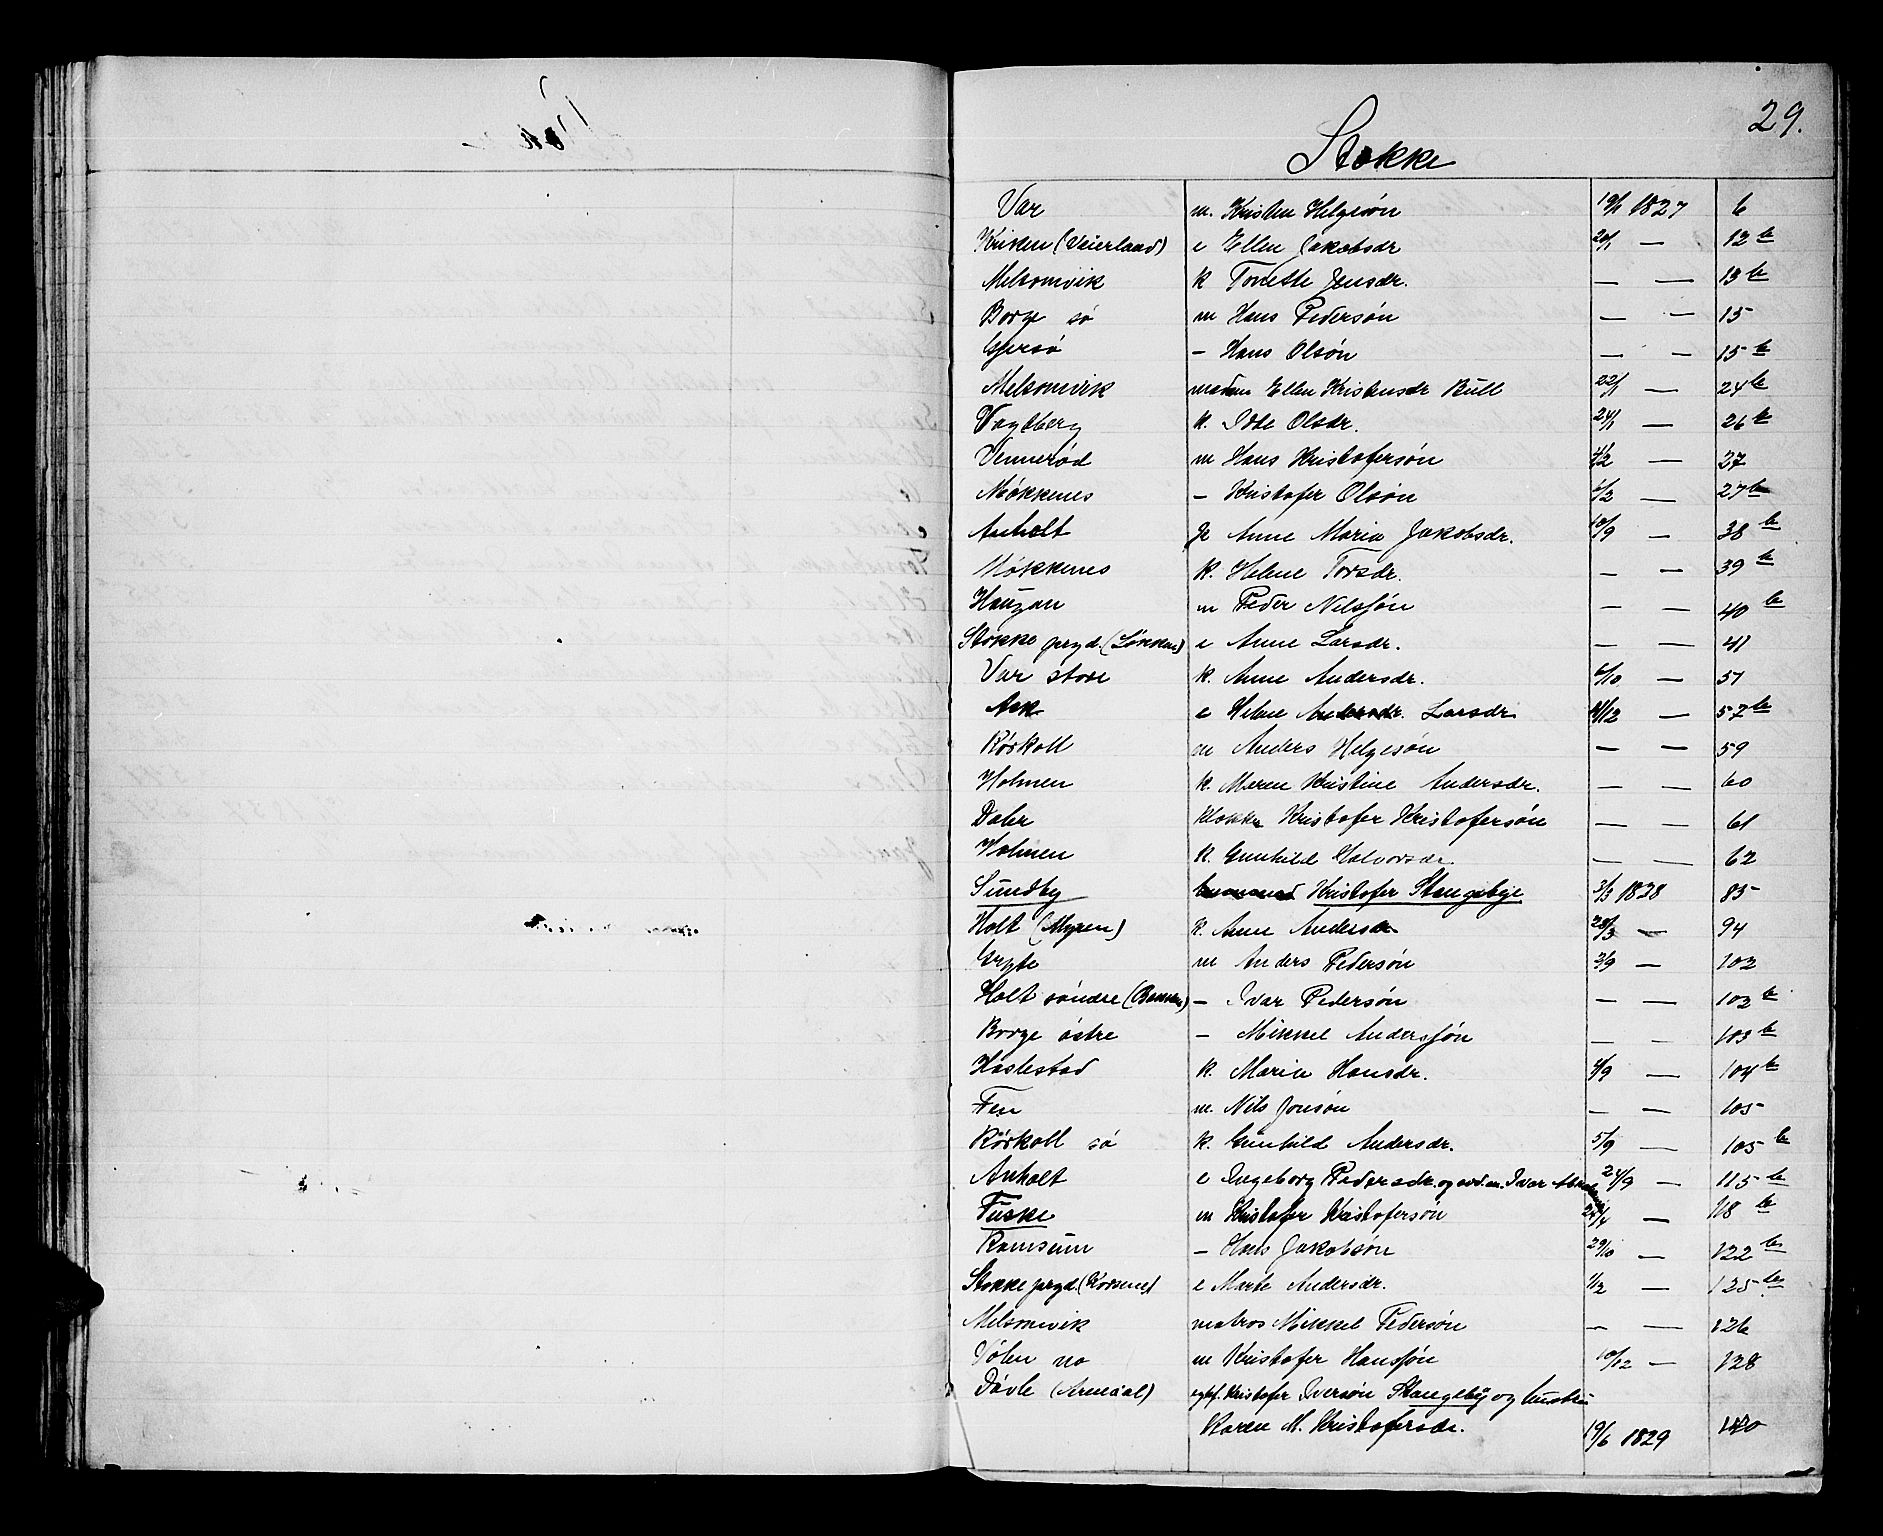 29.
Stokke
Var m. Kristen Helgesøn 19/1 1827 6
Kriken (Veierland) e Ellen Jakobsdr 20/1 — 12 b
Melsomvik k Tonette Jensdr. — — 13 b
Borge sø m Hans Pedersøn — — 15
Gjersø - Hans Olsøn — — 15 b
Melsomvik madam Ellen Kristensdr Bull 22/1 — 24 b
Vogtberg k. Idde Olsdr. 24/1 — 26 b
Vennerød m Hans Kristofersøn — 27
Møkkenes - Kristofer Olsøn — 27 b
Anholt p Anne Maria Jakobsdr. 10/9 — 38 b
Møkkenes k. Helene Torsdr. — — 39 b
Haugan m Peder Nilssøn — — 40 b
Stokke prgd. (Løkken) e Anne Larsdr. — — 41
Var store k. Anne Andersdr. 6/10 — 51
Ask e Helene Andersdr. Larsdr 4/12 — 57 b
Rørkoll m Anders Helgesøn — — 59
Holmen k. Maren Kristine Andersdr. — — 60
Daler klokker Kristofer Kristofersøn — — 61
Holmen k. Gunhild Halvorsdr. — — 62
Sundby Kristofer Stangebye 3/3 1828 85
Holt (Myren) k. Anne Andersdr 28/3 — 94
Gryte m Anders Pedersøn 3/9 — 102
Holt søndre (Bakken) - Ivar Pedersøn — — 102 b
Borge østre - Mikkel Anderssøn — — 103 b
Haslestad k. Maria Hansdr. 4/9 — 104 b
Fen m. Nils Jonsøn — — 105
Rørkoll sø k. Gunhild Andersdr. 5/9 — 105 b
Anholt e Ingeborg Pedersdr. og avd. m. Ivar 24/9 — 115 b
Fuske m Kristofer Kristofersøn — 118 b
Ramsum - Hans Jakobsøn 29/10 — 122 b
Stokke prgd. (Korsnes) e Marte Andersdr. 1/12 — 125 b
Melsomvik matros Mikkel Pedersøn — — 126
Vølen no m Kristofer Hanssøn 10/12 — 128
Døvle (Armeaal) Kristofer Iversøn Stangeby og hustru
Karen M. Kristofersdr. 19/6 1829 140